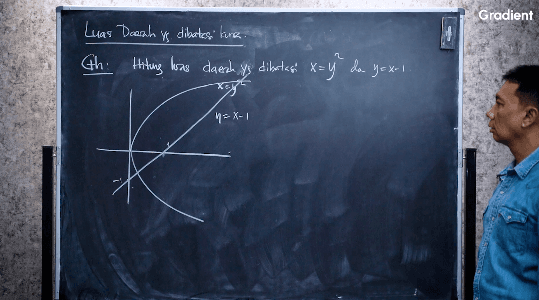 Gradient
Luas Daerah yg dibatasi kurva.
Cth: Hitung luas daerah yg dibatasi x = y² dan y = x-1
x = y²
y = x-1
1
-1